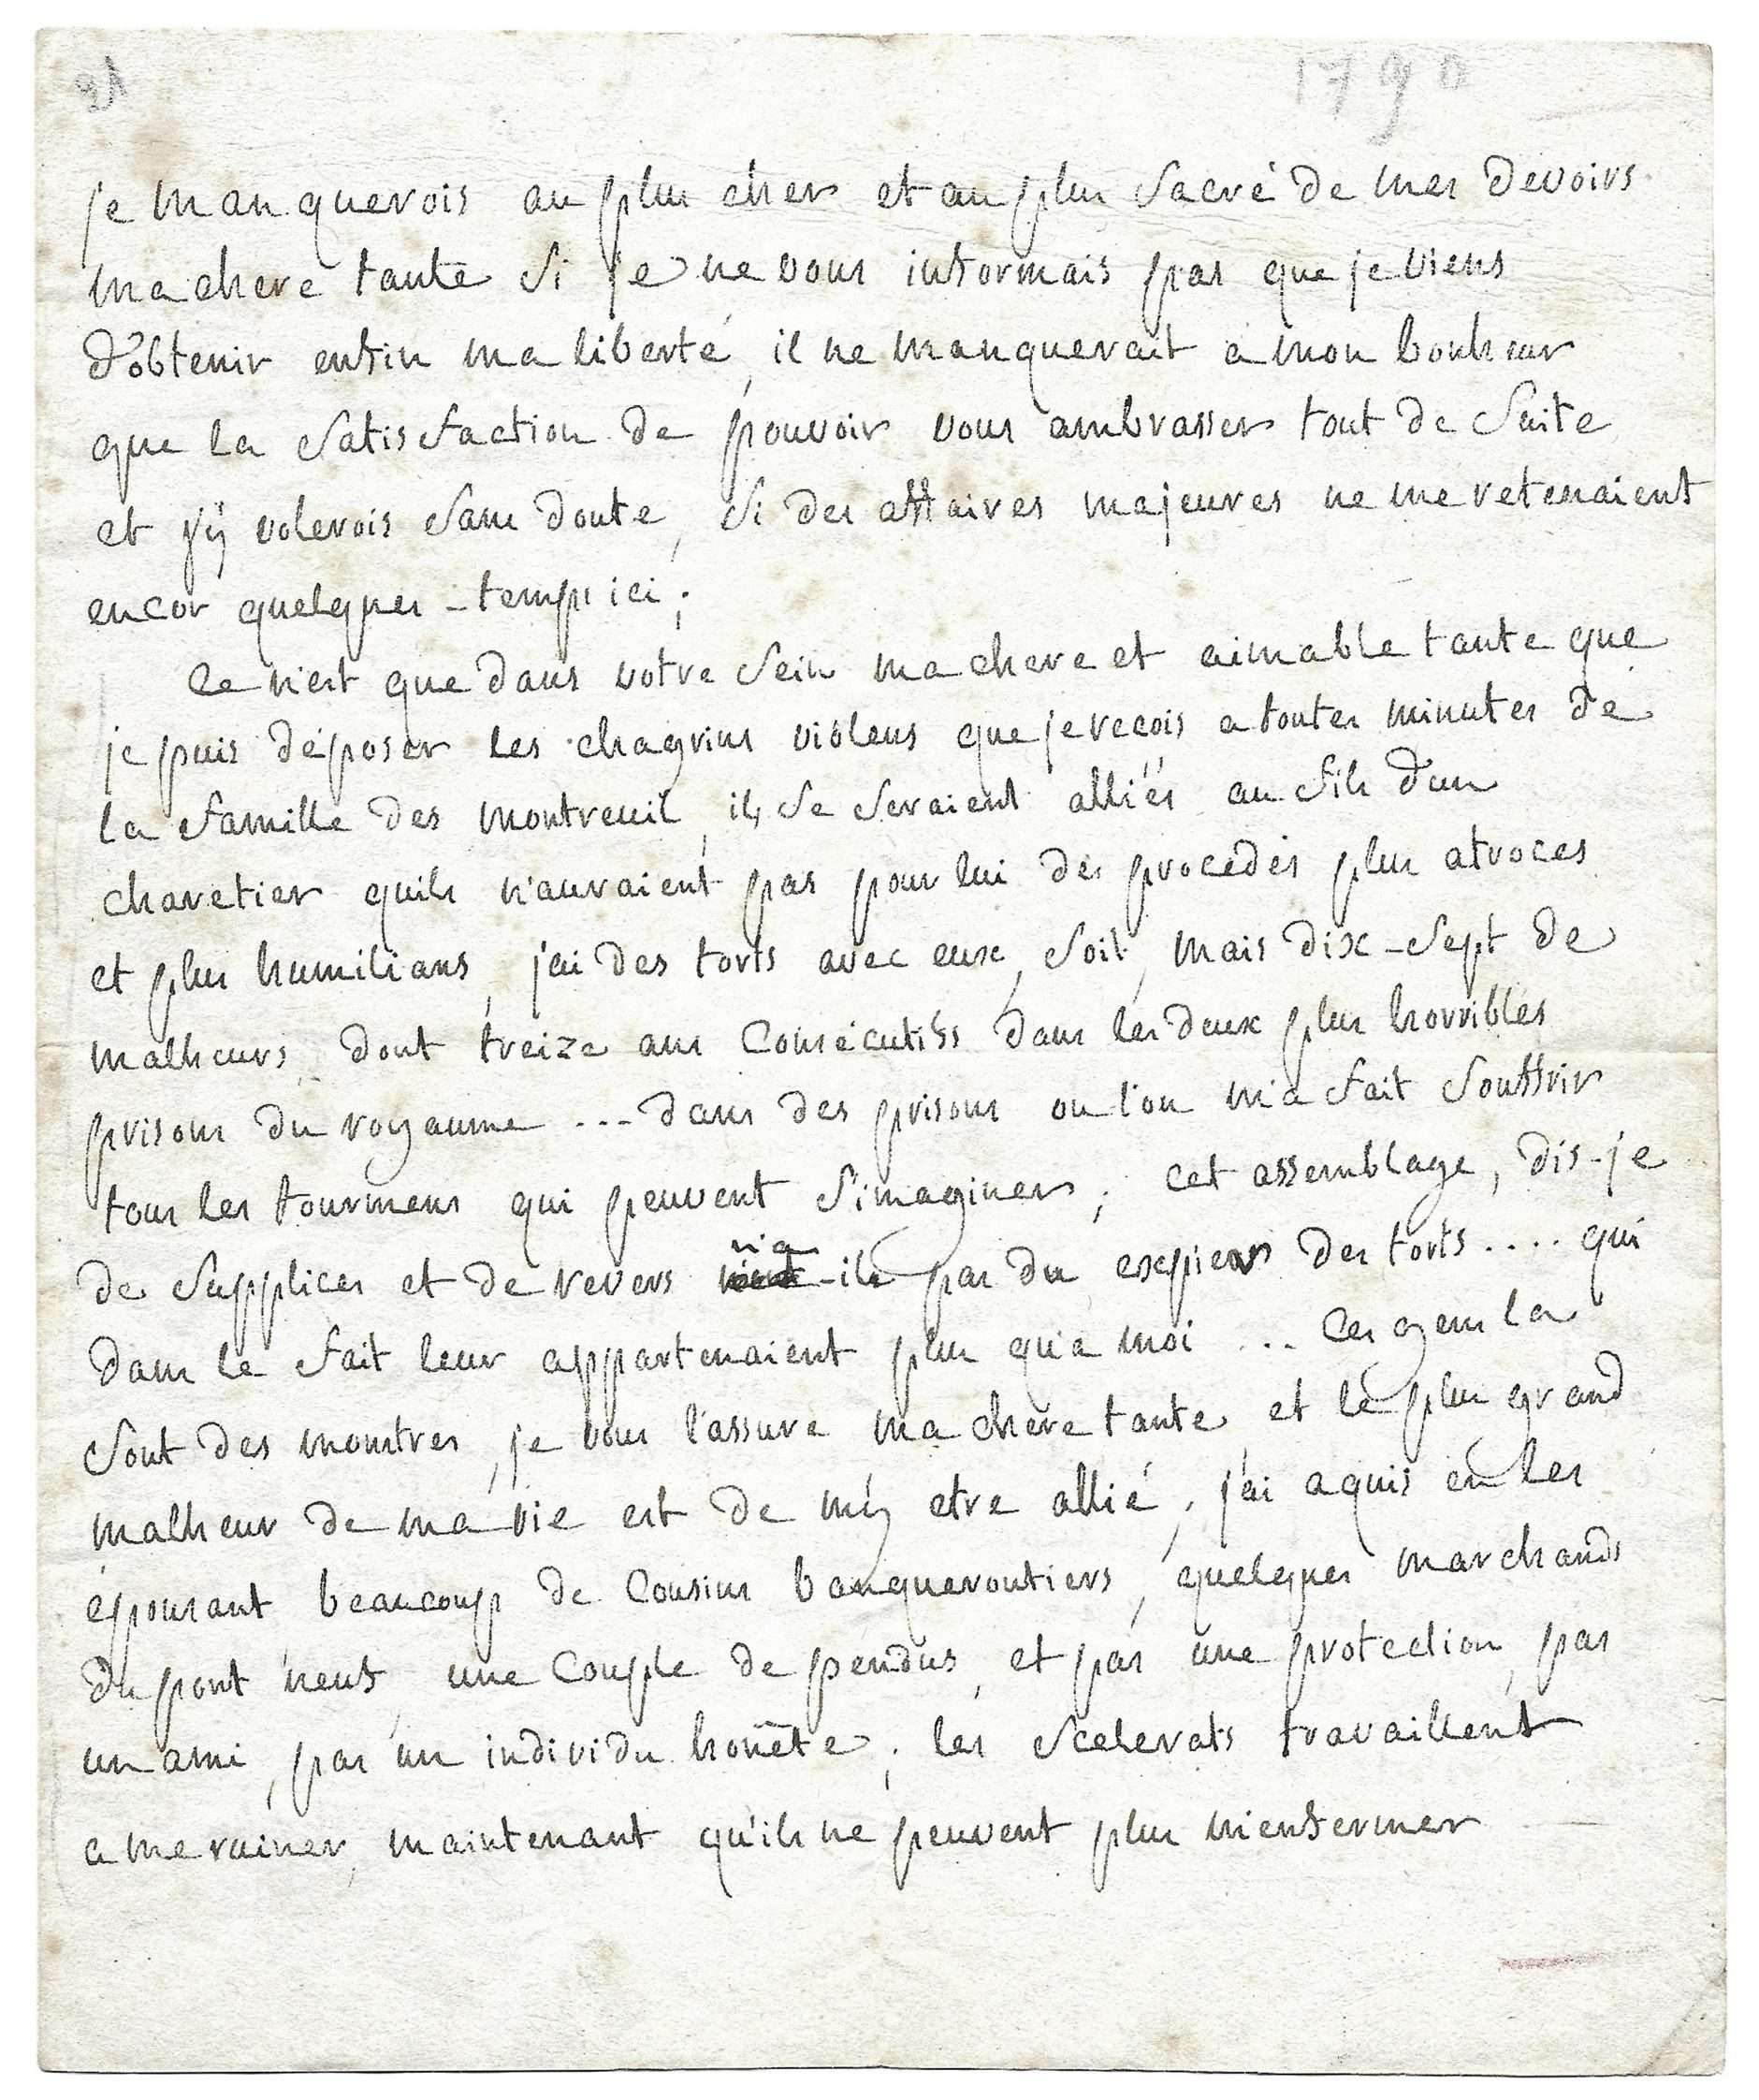 21
1790
je manquerois au plus cher et au plus sacré de mes devoirs
ma chere tante si je ne vous informais pas que je viens
d'obtenir enfin ma liberté, il ne manquerait a mon bonheur
que la satisfaction de pouvoir vous ambrasser tout de suite
et j'ÿ volerois sans doute, si des affaires majeures ne me retenaient
encor quelques-temps ici;
ce n'est que dans votre sein ma chere et aimable tante que
je puis déposer les chagrins violens que je recois a toutes minutes de
la famille des montreuil, ils se seraient alliés au fils d'un
charetier quils n'auraient pas pour lui des procedés plus atroces
et plus humilians, j'ai des torts avec eux, soit, mais dix-sept de
malheurs, dont treize ans consécutifs dans les deux plus horribles
prisons du royaume ... dans des prisons ou l'on m'a fait souffrir
tous les tourmens qui peuvent s'imaginer; cet assemblage, dis-je
de supplices et de revers n'a-ils pas du expier des torts .... qui
dans le fait leur appartenaient plus qu'a moi ... ces gens la
sont des monstres, je vous l'assure ma chere tante, et le plus grand
malheur de ma vie est de m'ÿ etre allié, j'ai aquis en les
épousant beaucoup de cousins banqueroutiers, quelques marchands
du pont neuf, une couple de pendus, et pas une protection, pas
un ami, pas un individu honête; les scelerats travaillent
a me ruiner, maintenant qu'ils ne peuvent plus m'enfermer